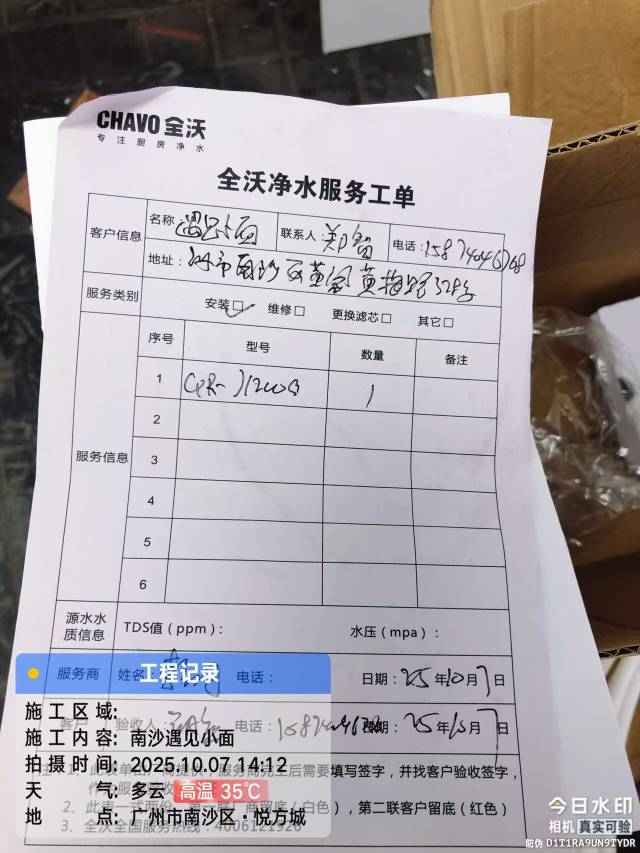 CHAVO 全沃
专注厨房净水
全沃净水服务工单
客户信息
名称 遇见小面 联系人 郑智 电话:15874046768
地址:
服务类别 安装□ 维修□ 更换滤芯□ 其它□
服务信息
序号 型号 数量 备注
1 1
2
3
4
5
6
源水水质信息 TDS值(ppm): 水压(mpa):
服务商 姓名 电话: 日期: 25年10月7日
客户 验收人 电话 25年10月7日
填写签字,并找客户验收签字,
2、此表一式两份,第一联厂商留底(白色),第二联客户留底(红色)
3、全沃全国服务热线:4006121926
工程记录
施工区域:
施工内容: 南沙遇见小面
拍摄时间: 2025.10.07 14:12
天气: 多云 高温 35℃
地点: 广州市南沙区·悦方城
今日水印
相机 真实可验
防伪 D1T1RA9UN9TYDR